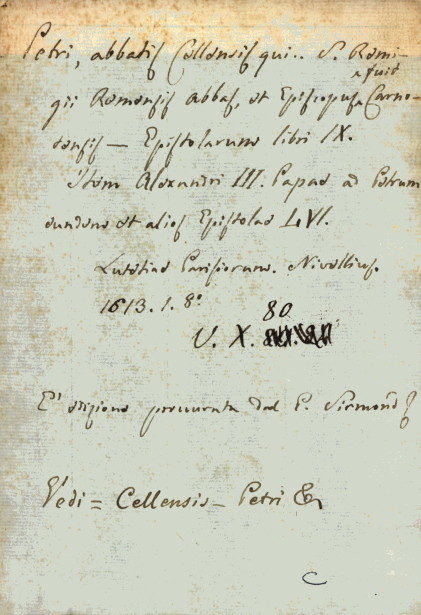 Petri, abbatis Cellensis qui.. S. Remi-
gii Remensis abbas, et Episcopus fuit Carno-
tensis — Epistolarum libri IX.
Item Alexandri III. Papae ad Petrum
eundem et alios Epistolae LVI.
Lutetiae Parisiorum. Nivellius.
1613. 1. 8º
80
V. X.
E' edizione procurata dal P. Sirmond
Vedi = Cellensis — Petri &
C